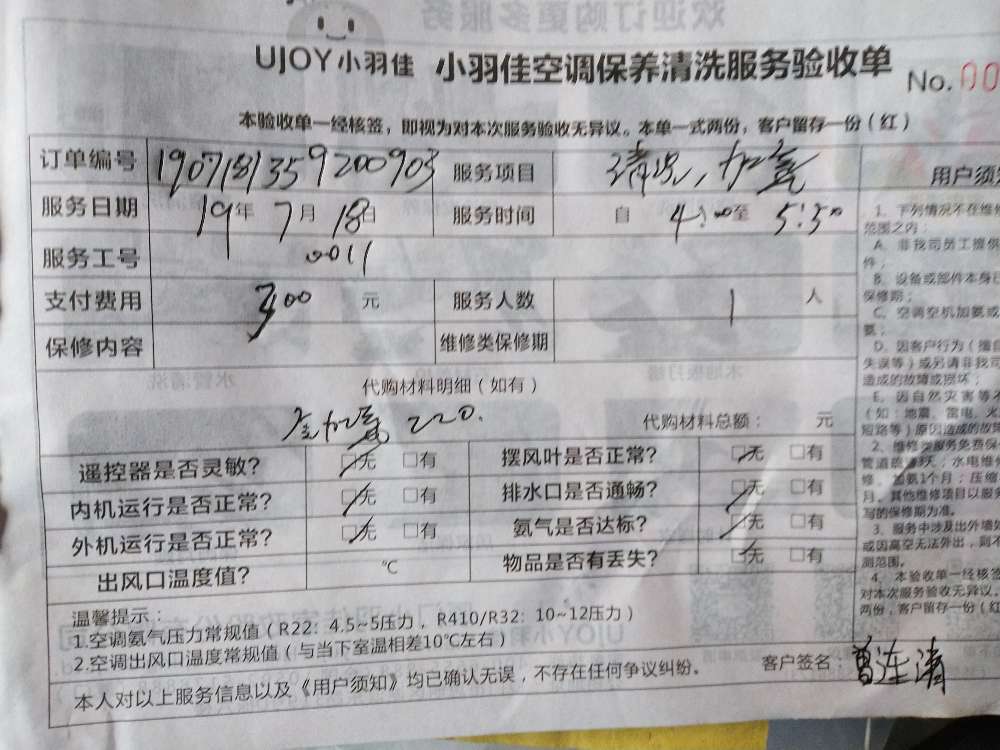 UJOY小羽佳 小羽佳空调保养清洗服务验收单 No.00
本验收单一经核签，即视为对本次服务验收无异议。本单一式两份，客户留存一份（红）
订单编号 1907181359200903 服务项目 清洗，加氨 用户须
服务日期 19年7月18日 服务时间 自4:00至5:30
服务工号 0011
支付费用 300元 服务人数 1人
保修内容 维修类保修期
代购材料明细（如有）
全加氨 220. 代购材料总额： 元
遥控器是否灵敏？ □无 □有 摆风叶是否正常？ □无 □有
内机运行是否正常？ □无 □有 排水口是否通畅？ □无 □有
外机运行是否正常？ □无 □有 氨气是否达标？ □无 □有
出风口温度值？ ℃ 物品是否有丢失？ □无 □有
温馨提示：
1.空调氨气压力常规值（R22：4.5~5压力，R410/R32：10~12压力）
2.空调出风口温度常规值（与当下室温相差10℃左右）
客户签名：曾连清
本人对以上服务信息以及《用户须知》均已确认无误，不存在任何争议纠纷。
1、下列情况不在维
范围之内：
A、非我司员工提供
件；
B、设备或部件本身已
保修期；
C、空调空机加氨或
氨；
D、因客户行为（擅自
失误等）或另请非我司
造成的故障或损坏；
E、因自然灾害等不
（如：地震、雷电、光
短路等）原因造成的故障
2、维修类服务免费保
管道疏通3天；水电维
修、加氨1个月；压缩
月。其他维修项目以服务
写的保修期为准。
3、服务中涉及出外墙
或因高空无法外出，则不
测范围。
4、本验收单一经核签
对本次服务验收无异议。
两份，客户留存一份（红